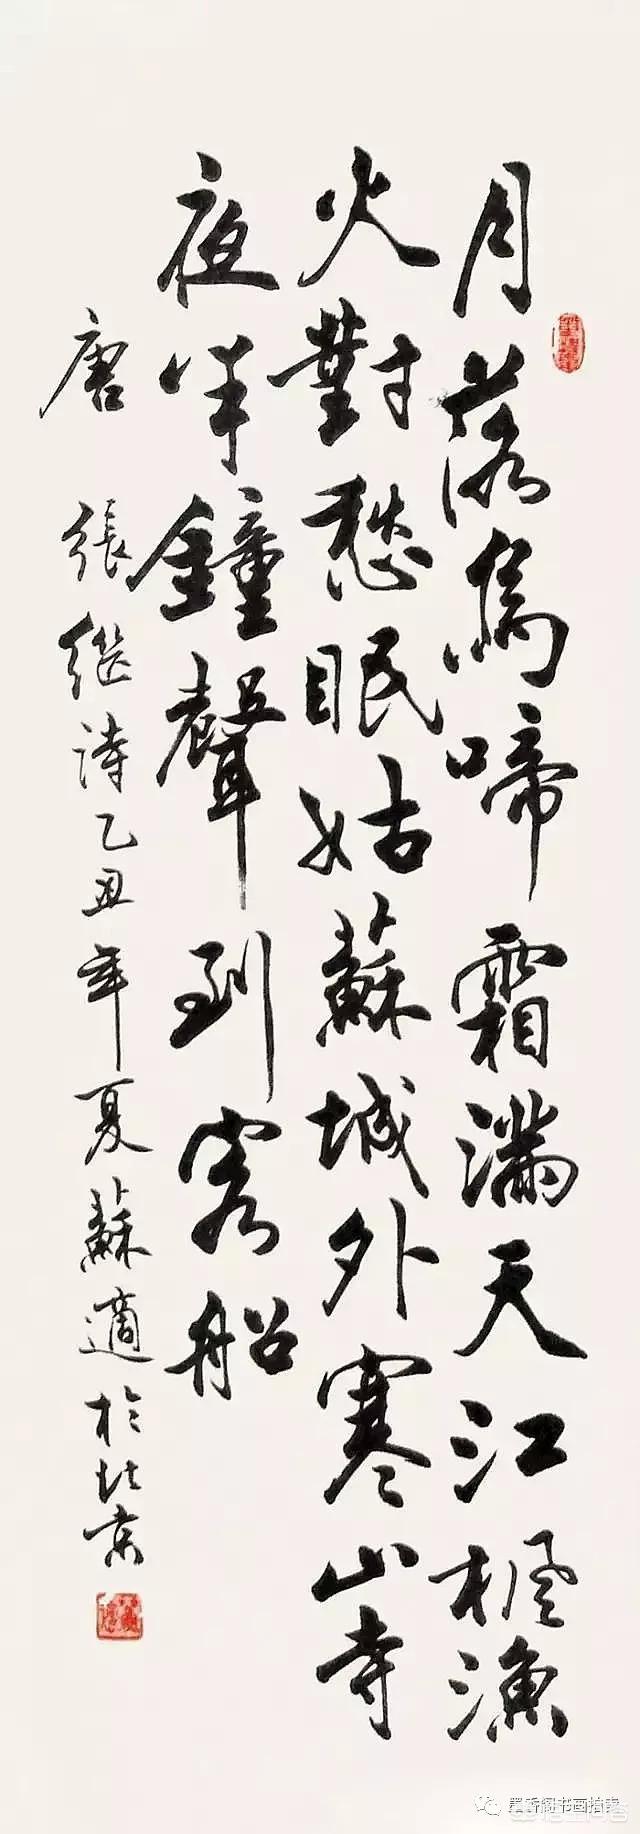 月落烏啼霜滿天江楓漁
火對愁眠姑蘇城外寒山寺
夜半鐘聲到客船
唐 張继詩乙丑年夏蘇適於北京
墨香阁书画拍卖